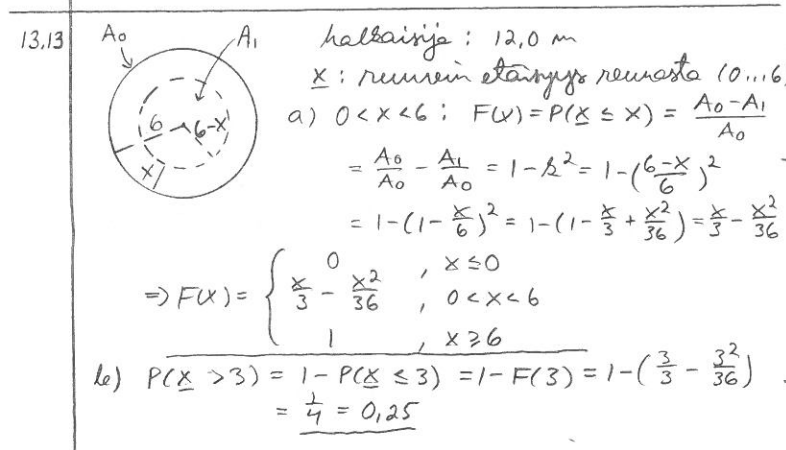 13.13
A₀ A₁
6 6-x
x
halkaisija : 12,0 m
x : etäisyys reunasta (0...6
a) 0 < x < 6 : F(x) = P(x ≤ x) = (A₀ - A₁)/A₀
= A₀/A₀ - A₁/A₀ = 1 - k² = 1 - ((6-x)/6)²
= 1 - (1 - x/6)² = 1 - (1 - x/3 + x²/36) = x/3 - x²/36
=> F(x) = { 0 , x ≤ 0
x/3 - x²/36 , 0 < x < 6
1 , x ≥ 6
b) P(x > 3) = 1 - P(x ≤ 3) = 1 - F(3) = 1 - (3/3 - 3²/36)
= 1/4 = 0,25